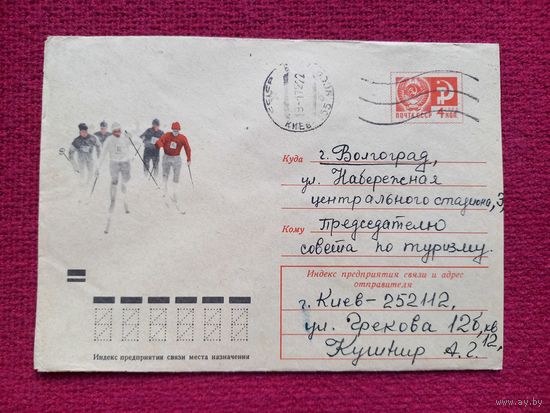 КИЕВ
ПОЧТА СССР
Куда г. Волгоград,
ул. Набережная
центрального стадиона, 3,
Кому Председателю
совета по туризму.
Индекс предприятия связи и адрес
отправителя
г. Киев-252112,
ул. Грекова 12б, кв
12,
Кушнир А. Г.
Индекс предприятия связи места назначения
www.ay.by